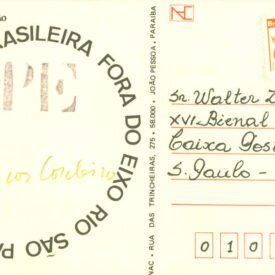 ÃO
BRASILEIRA FORA DO EIXO RIO SÃO PA
PE
cos Cordeiro
NAC • RUA DAS TRINCHEIRAS, 275 • 58.000 • JOÃO PESSOA, PARAÍBA
Sr. Walter
XVI Bienal
Caixa Pos
S. Paulo -
0 1 0